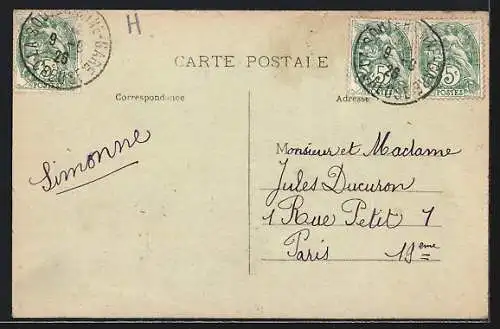 H
CARTE POSTALE
Correspondance
Adresse
5c
POSTES
Simonne
Monsieur et Madame
Jules Ducuron
1 Rue Petit 1
Paris 19eme